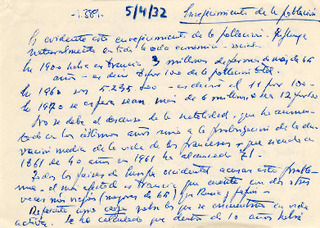 -1.381.
5/4/32
Envejecimiento de la población
Es evidente este envejecimiento de la población. Refleja
naturalmente en toda la vida económica - social.
En 1900 había en Francia 3 millones de personas de más de 65
años - es decir 8 por 100 de la población
En 1960 son 5.235.000 - es decir el 11 por 100 -
En 1970 se espera sean más de 6 millones o sea 12 por 100
No se debe al descenso de la natalidad, que ha aumen-
tado en los últimos años sino a la prolongación de la du-
ración media de la vida de los franceses, que siendo en
1861 de 40 años en 1961 ha alcanzado 71.
Todos los países de Europa occidental acusan este proble-
ma - el más afectado es Francia, que cuenta con dos o tres
veces más viejos (mayores de 65) que Rusia y Japón -
Representa una carga sobre los que se encuentran en vida
activa. Se ha calculado que dentro de 10 años habrá